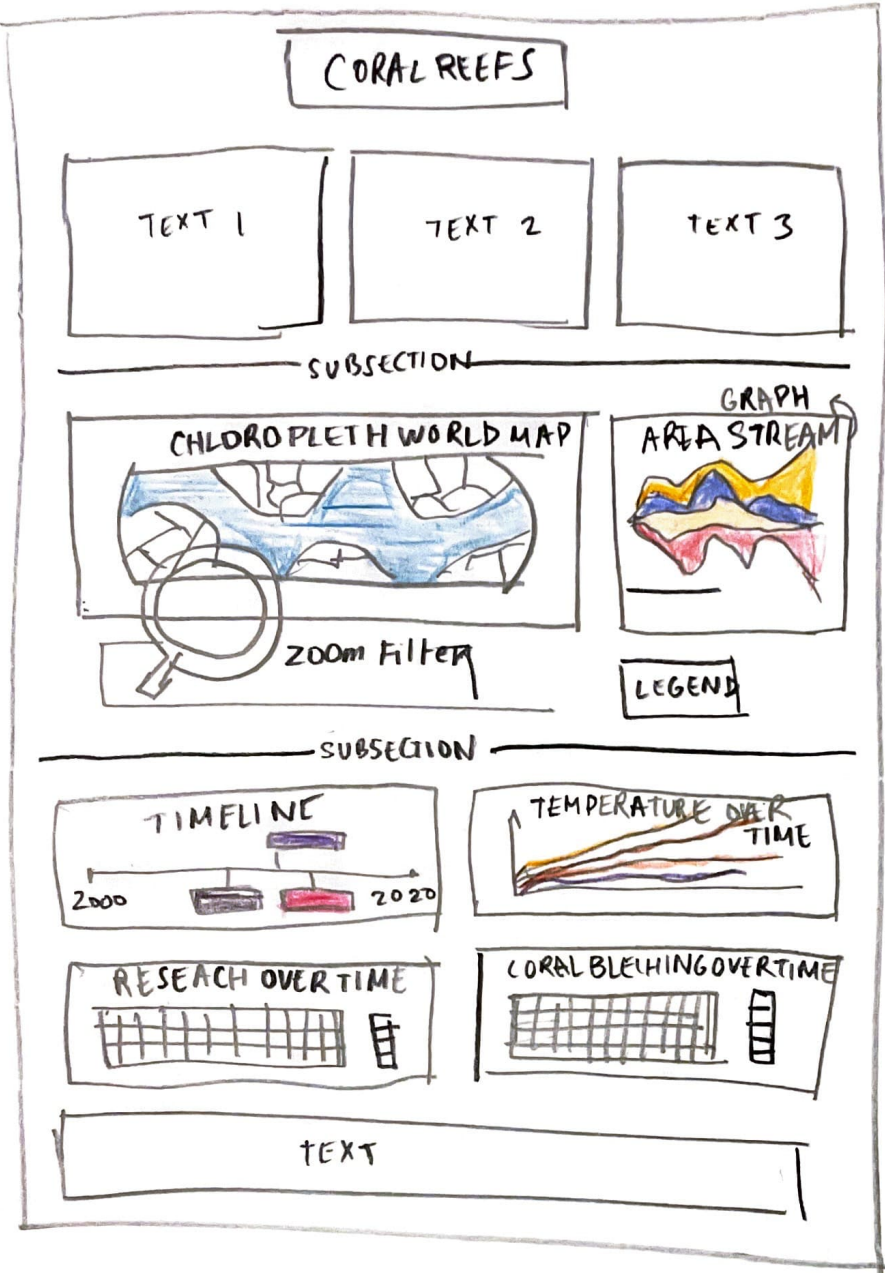 CORAL REEFS
TEXT 1
TEXT 2
TEXT 3
SUBSECTION
CHLOROPLETH WORLD MAP
GRAPH
AREA STREAM
ZOOm FilteR
LEGEND
SUBSECTION
TIMELINE
2000
2020
TEMPERATURE OVER
TIME
RESEACH OVER TIME
CORAL BLECHING OVER TIME
TEXT